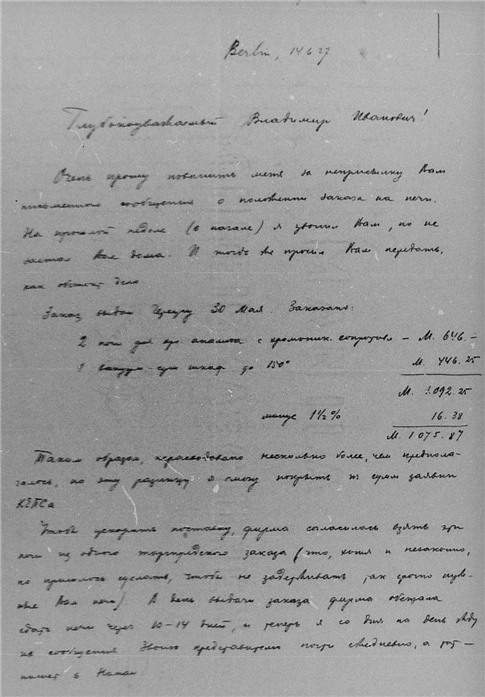 Berlin, 14 6 27
Глубокоуважаемый Владимир Иванович!
Очень прошу извинить меня за неприсылку Вам
письменного сообщения о положении заказа на печи.
На прошлой неделе (в начале) я звонил Вам, но не
застал Вас дома. И тогда же просил Вам передать,
как обстоит дело
Заказ выдан 30 Мая. Заказано:
2 печи для анализа с – М. 646.–
1 вакуум-суш шкаф до 150° М. 446.25
М. 1.092.25
минус 1½% 16.38
М. 1075.87
Таким образом, перерасходовано несколько более, чем предпола-
галось, но эту разницу я смогу покрыть из сумм заявки
КЕПСа
Чтобы ускорить поставку, фирма согласилась взять эти
печи из одного торгпредского заказа (это, хотя и незаконно,
но пришлось сделать, чтобы не задерживать так срочно нуж-
ные Вам печи) В день выдачи заказа фирма обещала
сдать печи через 10–14 дней, и теперь я со дня на день жду
их сообщения Звоню представителю почти ежедневно, а тот
пишет в